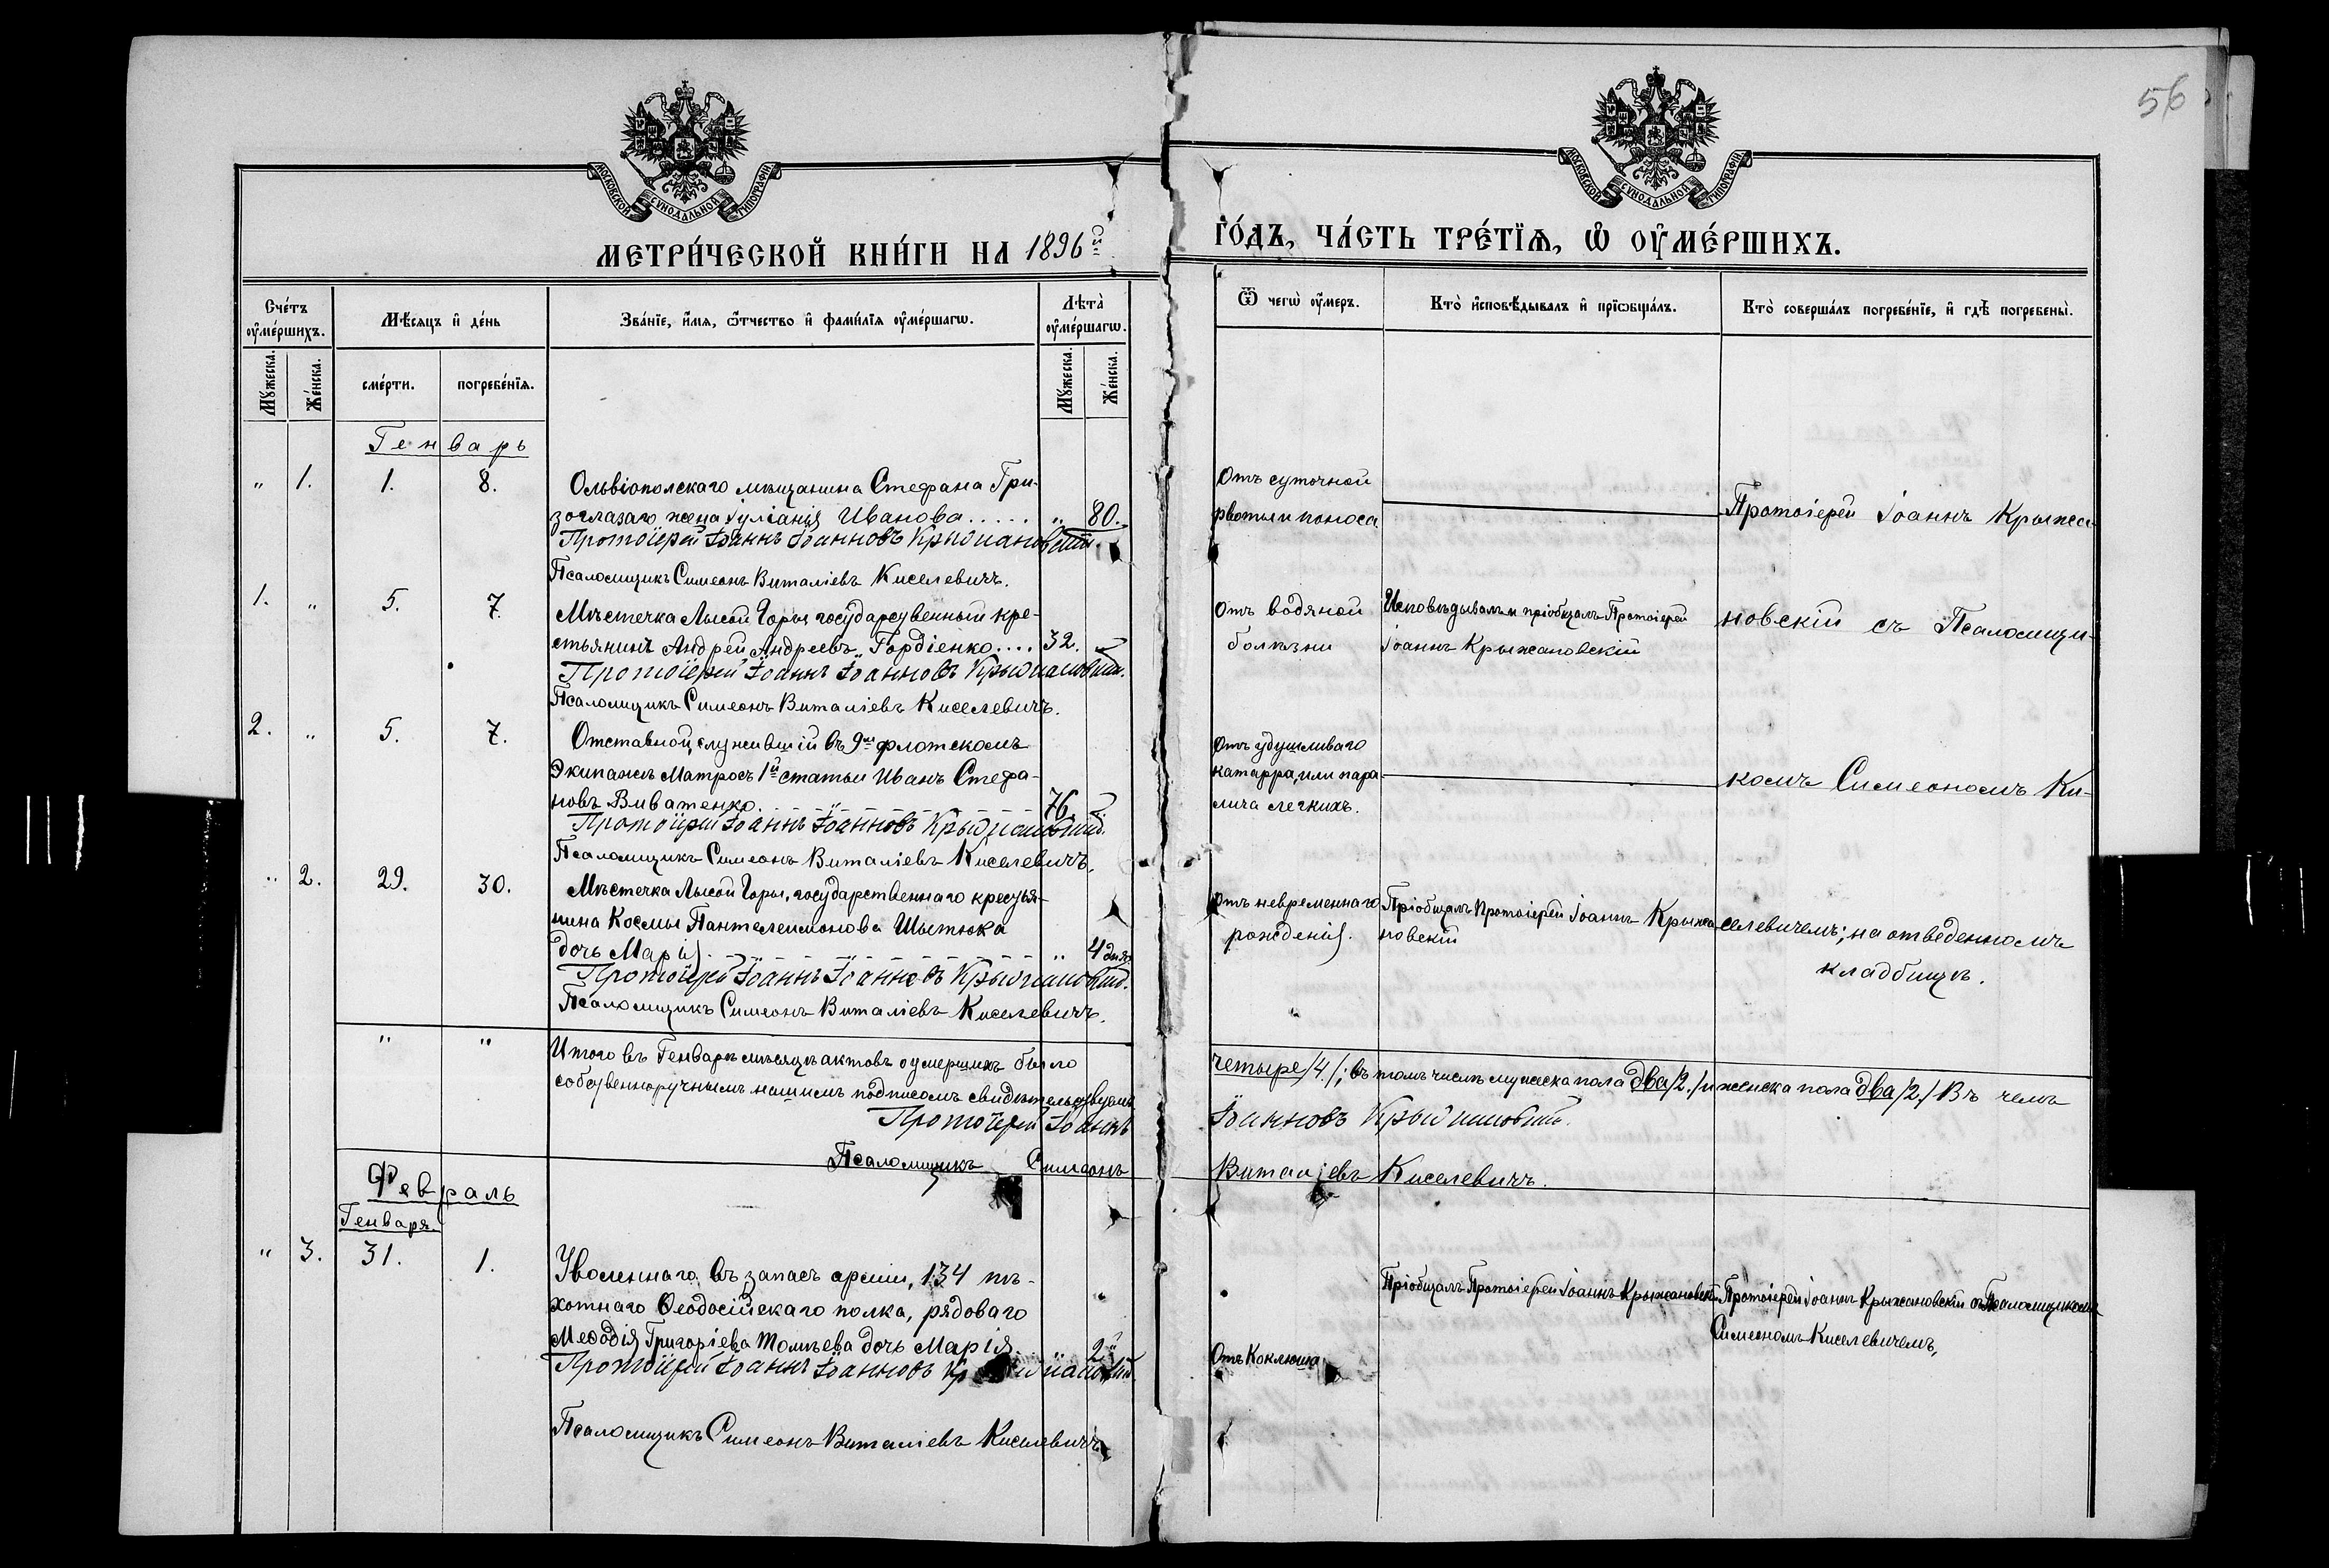 56
МОСКОВСКОЙ СѴНОДАЛЬНОЙ ТИПОГРАФІИ.
МОСКОВСКОЙ СѴНОДАЛЬНОЙ ТИПОГРАФІИ.
МЕТРИ́ЧЕСКОЙ КНИ́ГИ НА 1896ой
ГО́ДЪ, ЧА́СТЬ ТРЕ́ТЇѦ, Ѽ ОУ҆МЕ́РШИХЪ.
Сче́тъ оу҆ме́ршихъ.
Мѣ́сяцъ и҆ де́нь
Зва́нїе, и҆́мя, ѻ҆́тчество и҆ фами́лїя оу҆ме́ршагѡ.
Лѣта̀ оу҆ме́ршагѡ.
Ѿ чегѡ̀ оу҆́меръ.
Кто̀ и҆сповѣ́дывалъ и҆ прїѡбща́лъ.
Кто̀ соверша́лъ погребе́нїе, и҆ гдѣ̀ погребены̀.
Мꙋ́жеска.
Же́нска.
сме́рти.
погребе́нїя.
Мꙋ́жеска.
Же́нска.
Генварь
" 1. 1. 8. Ольвіопольскаго мѣщанина Стефана Гри-
зоглазаго жена Іуліанія Иванова..... " 80.
Протоіерей Іоаннъ Іоанновъ Крыжановскій.
Псаломщикъ Симеонъ Виталіевъ Киселевичъ.
Отъ суточной
рвоты и поноса
Протоіерей Іоаннъ Крыжа-
1. " 5. 7. Мѣстечка Лысой Горы государственный кре-
стьянинъ Андрей Андреевъ Гордіенко.... 32. "
Протоіерей Іоаннъ Іоанновъ Крыжановскій.
Псаломщикъ Симеонъ Виталіевъ Киселевичъ.
Отъ водяной
болѣзни
Исповѣдывалъ и пріобщалъ Протоіерей
Іоаннъ Крыжановскій
новскій съ Псаломщи-
2. " 5. 7. Отставной, служившій въ 9мъ флотскомъ
Экипажѣ Матросъ 1й статьи Иванъ Стефа-
новъ Виватенко. 76. "
Протоіерей Іоаннъ Іоанновъ Крыжановскій.
Псаломщикъ Симеонъ Виталіевъ Киселевичъ.
Отъ удушливаго
катарра, или пара-
лича легкихъ.
комъ Симеономъ Ки-
" 2. 29. 30. Мѣстечка Лысой Горы, государственнаго крестья-
нина Космы Пантелеимонова
дочь Марія. " 4 дня.
Протоіерей Іоаннъ Іоанновъ Крыжановскій.
Псаломщикъ Симеонъ Виталіевъ Киселевичъ.
Отъ невременнаго
рожденія.
Пріобщалъ Протоіерей Іоаннъ Крыжа
новскій
селевичемъ; на отведенномъ
кладбищѣ.
" " Итого въ Генварѣ мѣсяцѣ актовъ о умершихъ было четыре /4/; въ томъ числѣ мужеска пола два /2./ и женска пола два /2/ Въ чемъ
собственноручнымъ нашимъ подписомъ свидѣтельствуемъ
Протоіерей Іоаннъ Іоанновъ Крыжановскій.
Псаломщикъ Симеонъ Виталіевъ Киселевичъ.
Февраль
Генваря.
" 3. 31. 1. Уволеннаго въ запасъ арміи, 134 пѣ-
хотнаго Ѳеодосійскаго полка, рядоваго
Меѳодія Григоріева дочь Марія. 2
Протоіерей Іоаннъ Іоанновъ
Псаломщикъ Симеонъ Виталіевъ Киселевичъ
Отъ Коклюша
Пріобщалъ Протоіерей Іоаннъ Крыжановскій
Протоіерей Іоаннъ Крыжановскій съ Псаломщикомъ
Симеономъ Киселевичемъ,